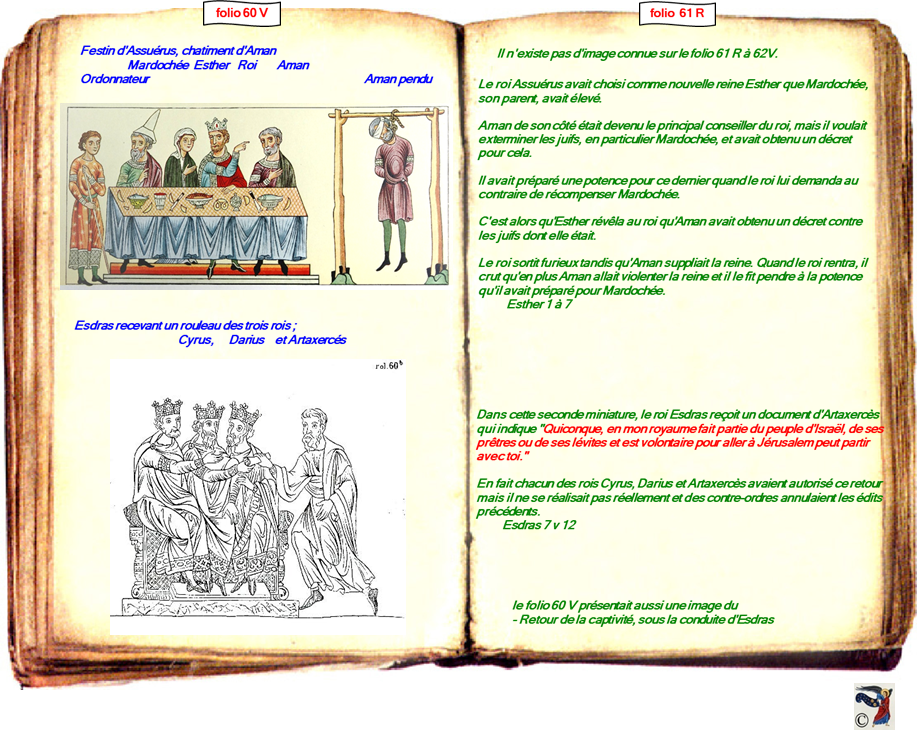 folio 60 V
Festin d'Assuérus, chatiment d'Aman
Mardochée Esther Roi Aman
Ordonnateur Aman pendu
Esdras recevant un rouleau des trois rois ;
Cyrus, Darius et Artaxercés
rol. 60ᵇ
folio 61 R
Il n'existe pas d'image connue sur le folio 61 R à 62V.
Le roi Assuérus avait choisi comme nouvelle reine Esther que Mardochée,
son parent, avait élevé.
Aman de son côté était devenu le principal conseiller du roi, mais il voulait
exterminer les juifs, en particulier Mardochée, et avait obtenu un décret
pour cela.
Il avait préparé une potence pour ce dernier quand le roi lui demanda au
contraire de récompenser Mardochée.
C'est alors qu'Esther révêla au roi qu'Aman avait obtenu un décret contre
les juifs dont elle était.
Le roi sortit furieux tandis qu'Aman suppliait la reine. Quand le roi rentra, il
crut qu'en plus Aman allait violenter la reine et il le fit pendre à la potence
qu'il avait préparé pour Mardochée.
Esther 1 à 7
Dans cette seconde miniature, le roi Esdras reçoit un document d'Artaxercès
qui indique "Quiconque, en mon royaume fait partie du peuple d'Israël, de ses
prêtres ou de ses lévites et est volontaire pour aller à Jérusalem peut partir
avec toi."
En fait chacun des rois Cyrus, Darius et Artaxercès avaient autorisé ce retour
mais il ne se réalisait pas réellement et des contre-ordres annulaient les édits
précédents.
Esdras 7 v 12
le folio 60 V présentait aussi une image du
- Retour de la captivité, sous la conduite d'Esdras
©